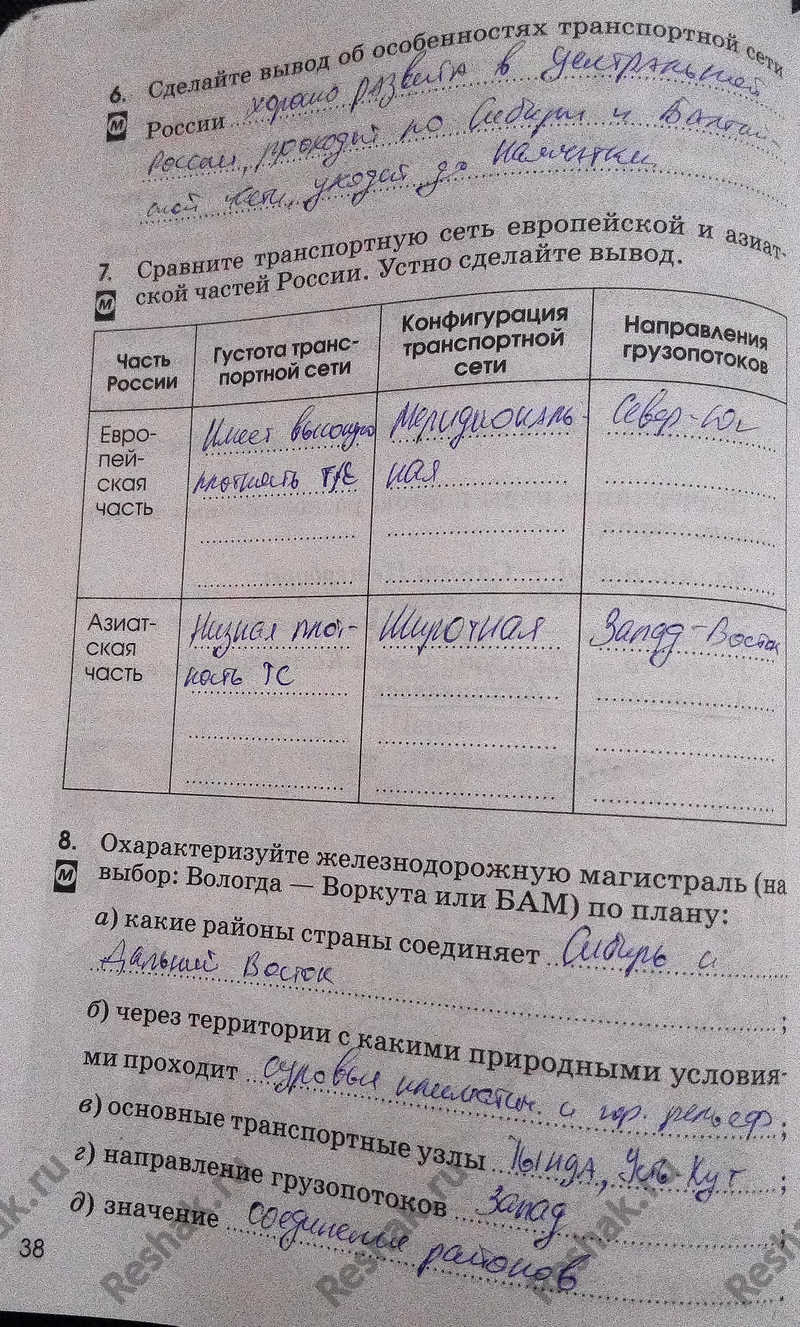 6. Сделайте вывод об особенностях транспортной сети
М России хорошо развита в центральной
России, проходит по Сибири и
уходит до Камчатки
7. Сравните транспортную сеть европейской и азиат-
М ской частей России. Устно сделайте вывод.
Часть России
Густота транс-
портной сети
Конфигурация
транспортной
сети
Направления
грузопотоков
Евро-
пей-
ская
часть
Имеет высокую
плотность Т/С
Меридиональ-
ная
Север-Юг
Азиат-
ская
часть
Низкая плот-
ность ТС
Широтная
Запад-Восток
8. Охарактеризуйте железнодорожную магистраль (на
М выбор: Вологда — Воркута или БАМ) по плану:
а) какие районы страны соединяет Сибирь и
Дальний Восток ;
б) через территории с какими природными условия-
ми проходит суровый климатич. и гор. рельеф ;
в) основные транспортные узлы Тында, Усть-Кут ;
г) направление грузопотоков Запад ;
д) значение соединение районов .
38
Reshak.ru
Reshak.ru
Reshak.ru